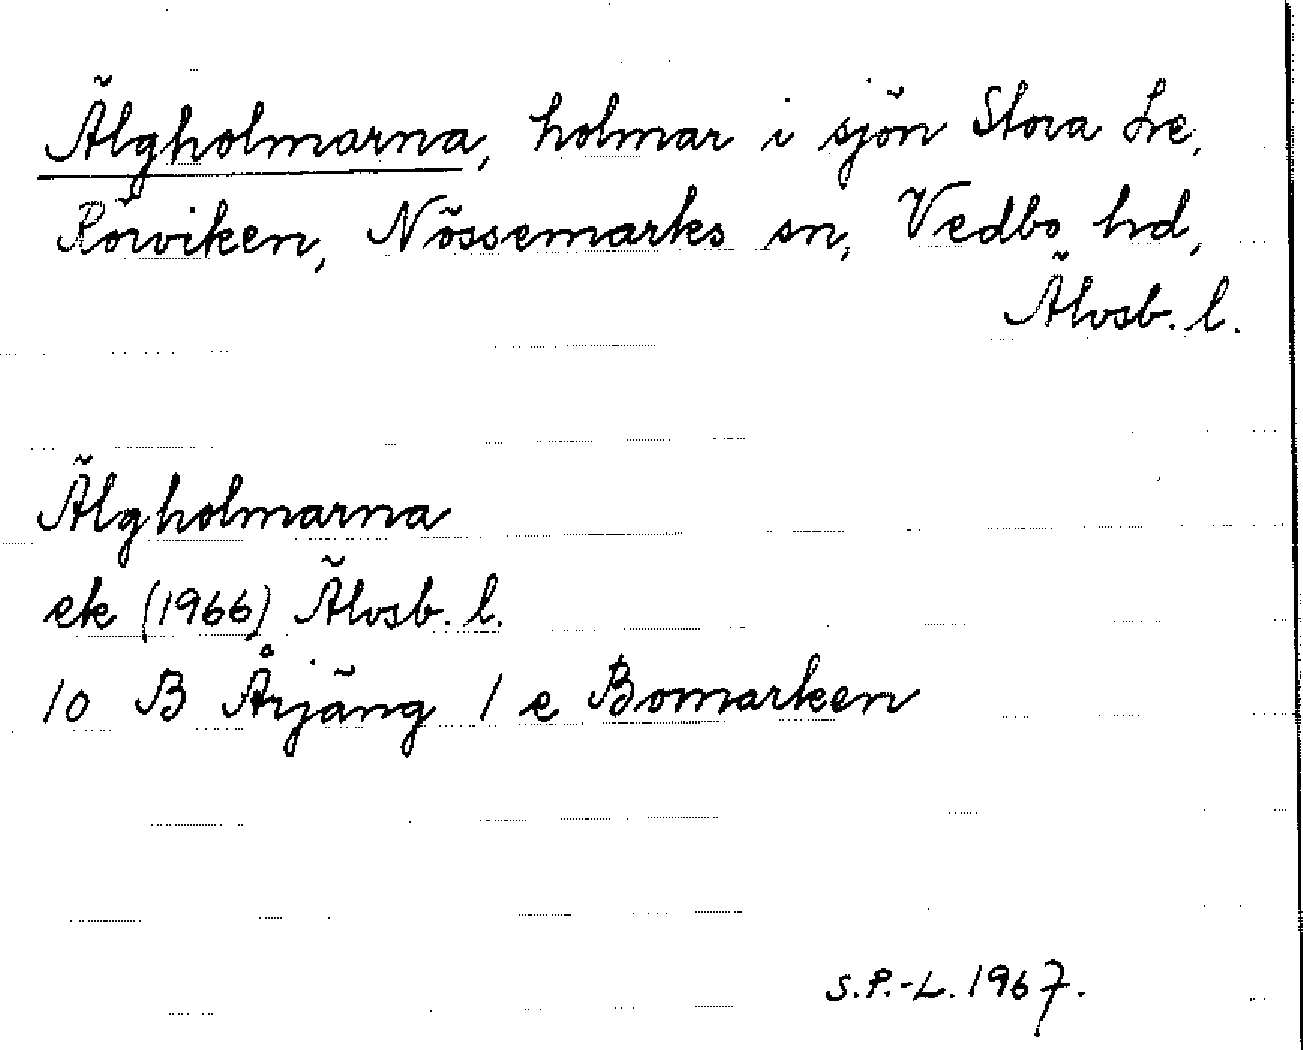 Älgholmarna, holmar i sjön Stora Le,
Rörviken, Nössemarks sn, Vedbo hd,
Älvsb. l.
Älgholmarna
ek (1966) Älvsb. l.
10 B Årjäng 1 e Bomarken
S.P.-L. 1967.